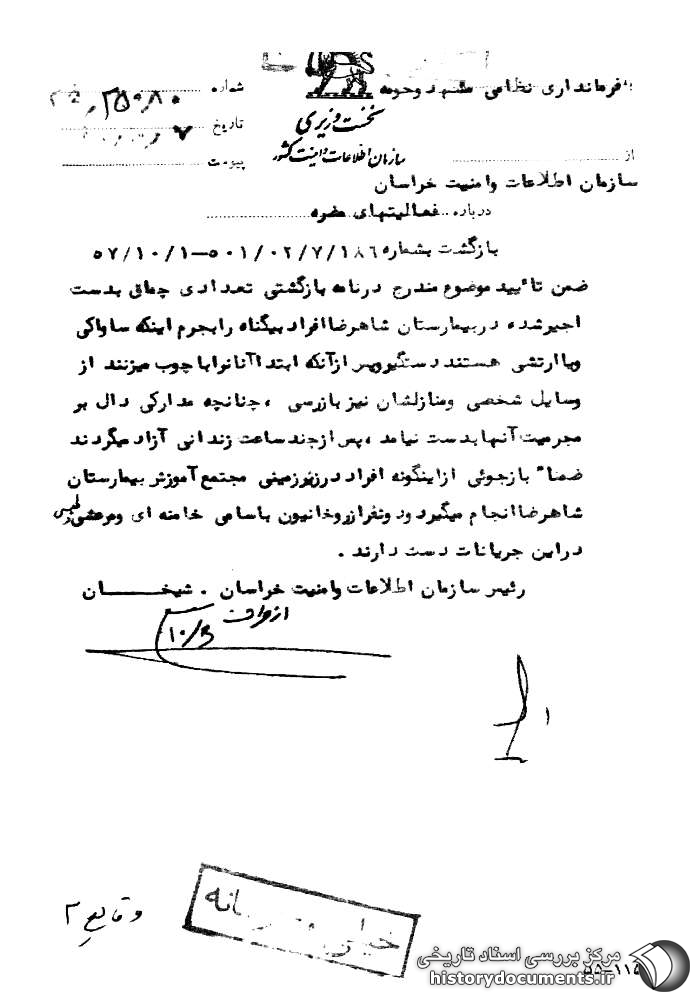 به فرمانداری نظامی مشهد وحومه
شماره
نخست وزیری
تاریخ
سازمان اطلاعات و امنیت کشور
پیوست
از
سازمان اطلاعات وامنیت خراسان
درباره فعالیتهای مضره
بازگشت بشماره ۵۰۱/۰۲/۷/۱۸۶-۵۷/۱۰/۱
ضمن تائید موضوع مندرج درنامه بازگشتی تعدادی چماق بدست
اجیرشده دربیمارستان شاهرضا افراد بیگناه رابجرم اینکه ساواکی
ویاارتشی هستند دستگیروپس ازآنکه ابتدا آنانرا باچوب میزنند از
وسایل شخصی ومنازلشان نیز بازرسی ، چنانچه مدارکی دال بر
مجرمیت آنها بدست نیامد ، پس ازچند ساعت زندانی آزاد میگردند
ضمنا" بازجوئی ازاینگونه افراد درزیرزمینی مجتمع آموزش بیمارستان
شاهرضا انجام میگیرد ودونفرازروحانیون باسامی خامنه ای ومرعشی طبسی
دراین جریانات دست دارند .
رئیس سازمان اطلاعات وامنیت خراسان . شیخان
از طرف
۱۰/۶
وقایع ۲
خیلی محرمانه
مرکز بررسی اسناد تاریخی
historydocuments.ir